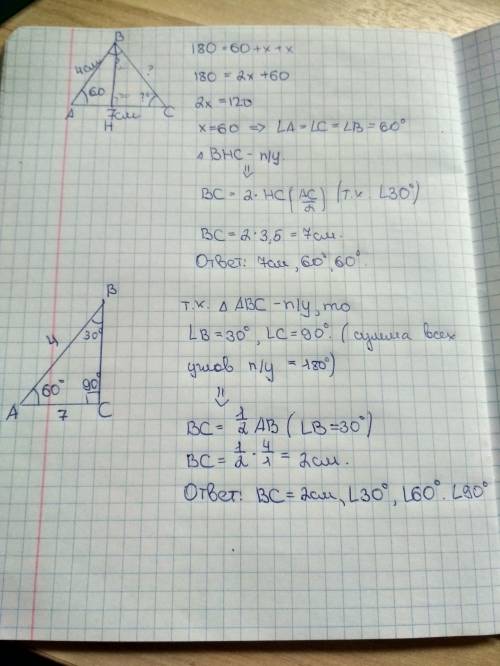 B
4см
?
60
?°
A
7см
C
H
180 = 60 + x + x
180 = 2x + 60
2x = 120
x = 60 => ∠A = ∠C = ∠B = 60°
△ BHC - п/у.
⇓
BC = 2 · HC (AC/2) (т.к. ∠30°)
BC = 2 · 3,5 = 7см.
Ответ: 7см, 60°, 60°.
B
30°
4
60°
90°
A
7
C
т.к. △ ABC - п/у, то
∠B = 30°, ∠C = 90°. (сумма всех
углов п/у = 180°)
⇓
BC = 1/2 AB (∠B = 30°)
BC = 1/2 · 4/1 = 2см.
Ответ: BC = 2см, ∠30°, ∠60°. ∠90°